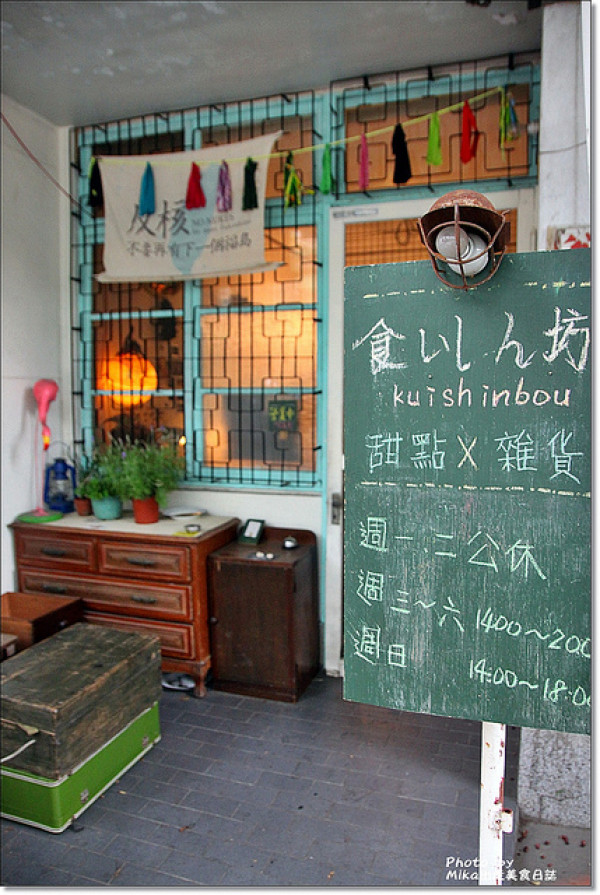 反核
NO NUKES
不要再有下一個福島
食いしん坊
kuishinbou
甜點 X 雜貨
週一.二公休
週三~六 1400~200
週日 14:00~18:00
Photo by